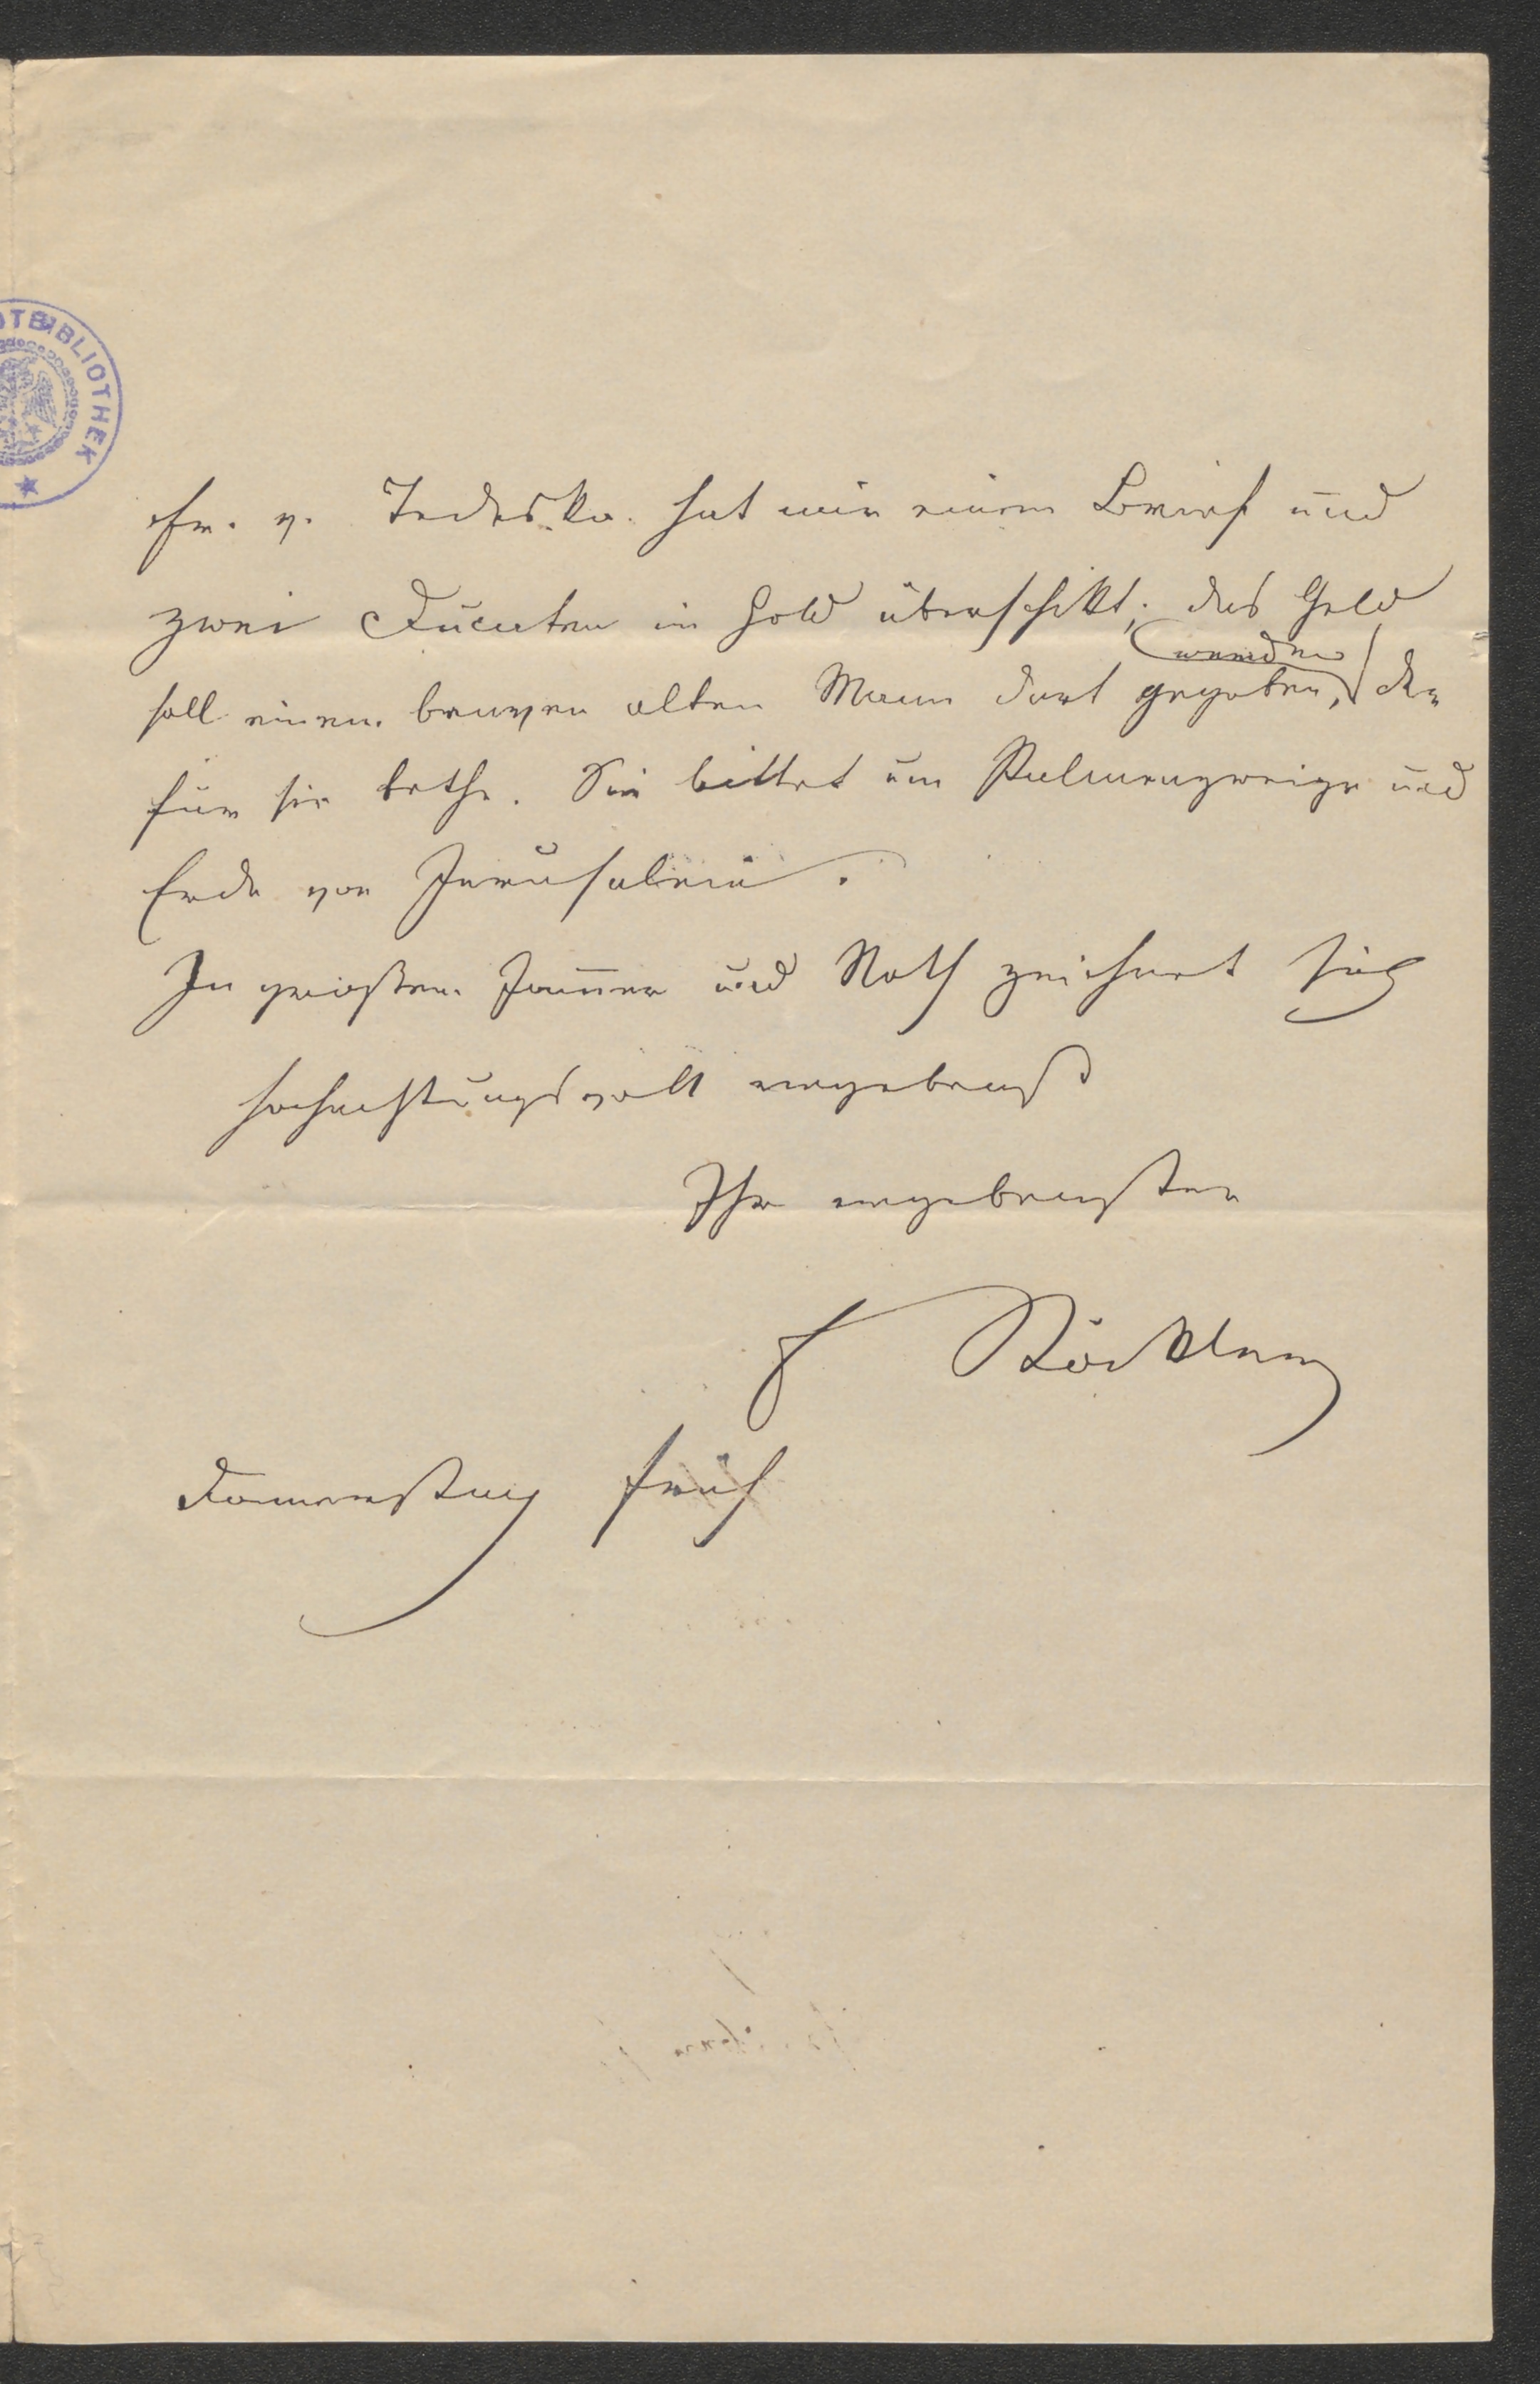 TBIBLIOTHEK
Fr. v. Tedesko hat mir einen Brief und
zwei Ducaten in Gold überschikt; das Geld
werden
soll einem braven alten Mann dort gegeben, der
für sie bethe. Sie bittet um Palmenzweige und
Erde von Jerusalem.
In größten Jam̅er und Noth zeichnet sich
hochachtungsvoll ergebenst
Ihr ergebenster
Döckler
Donnerstag früh